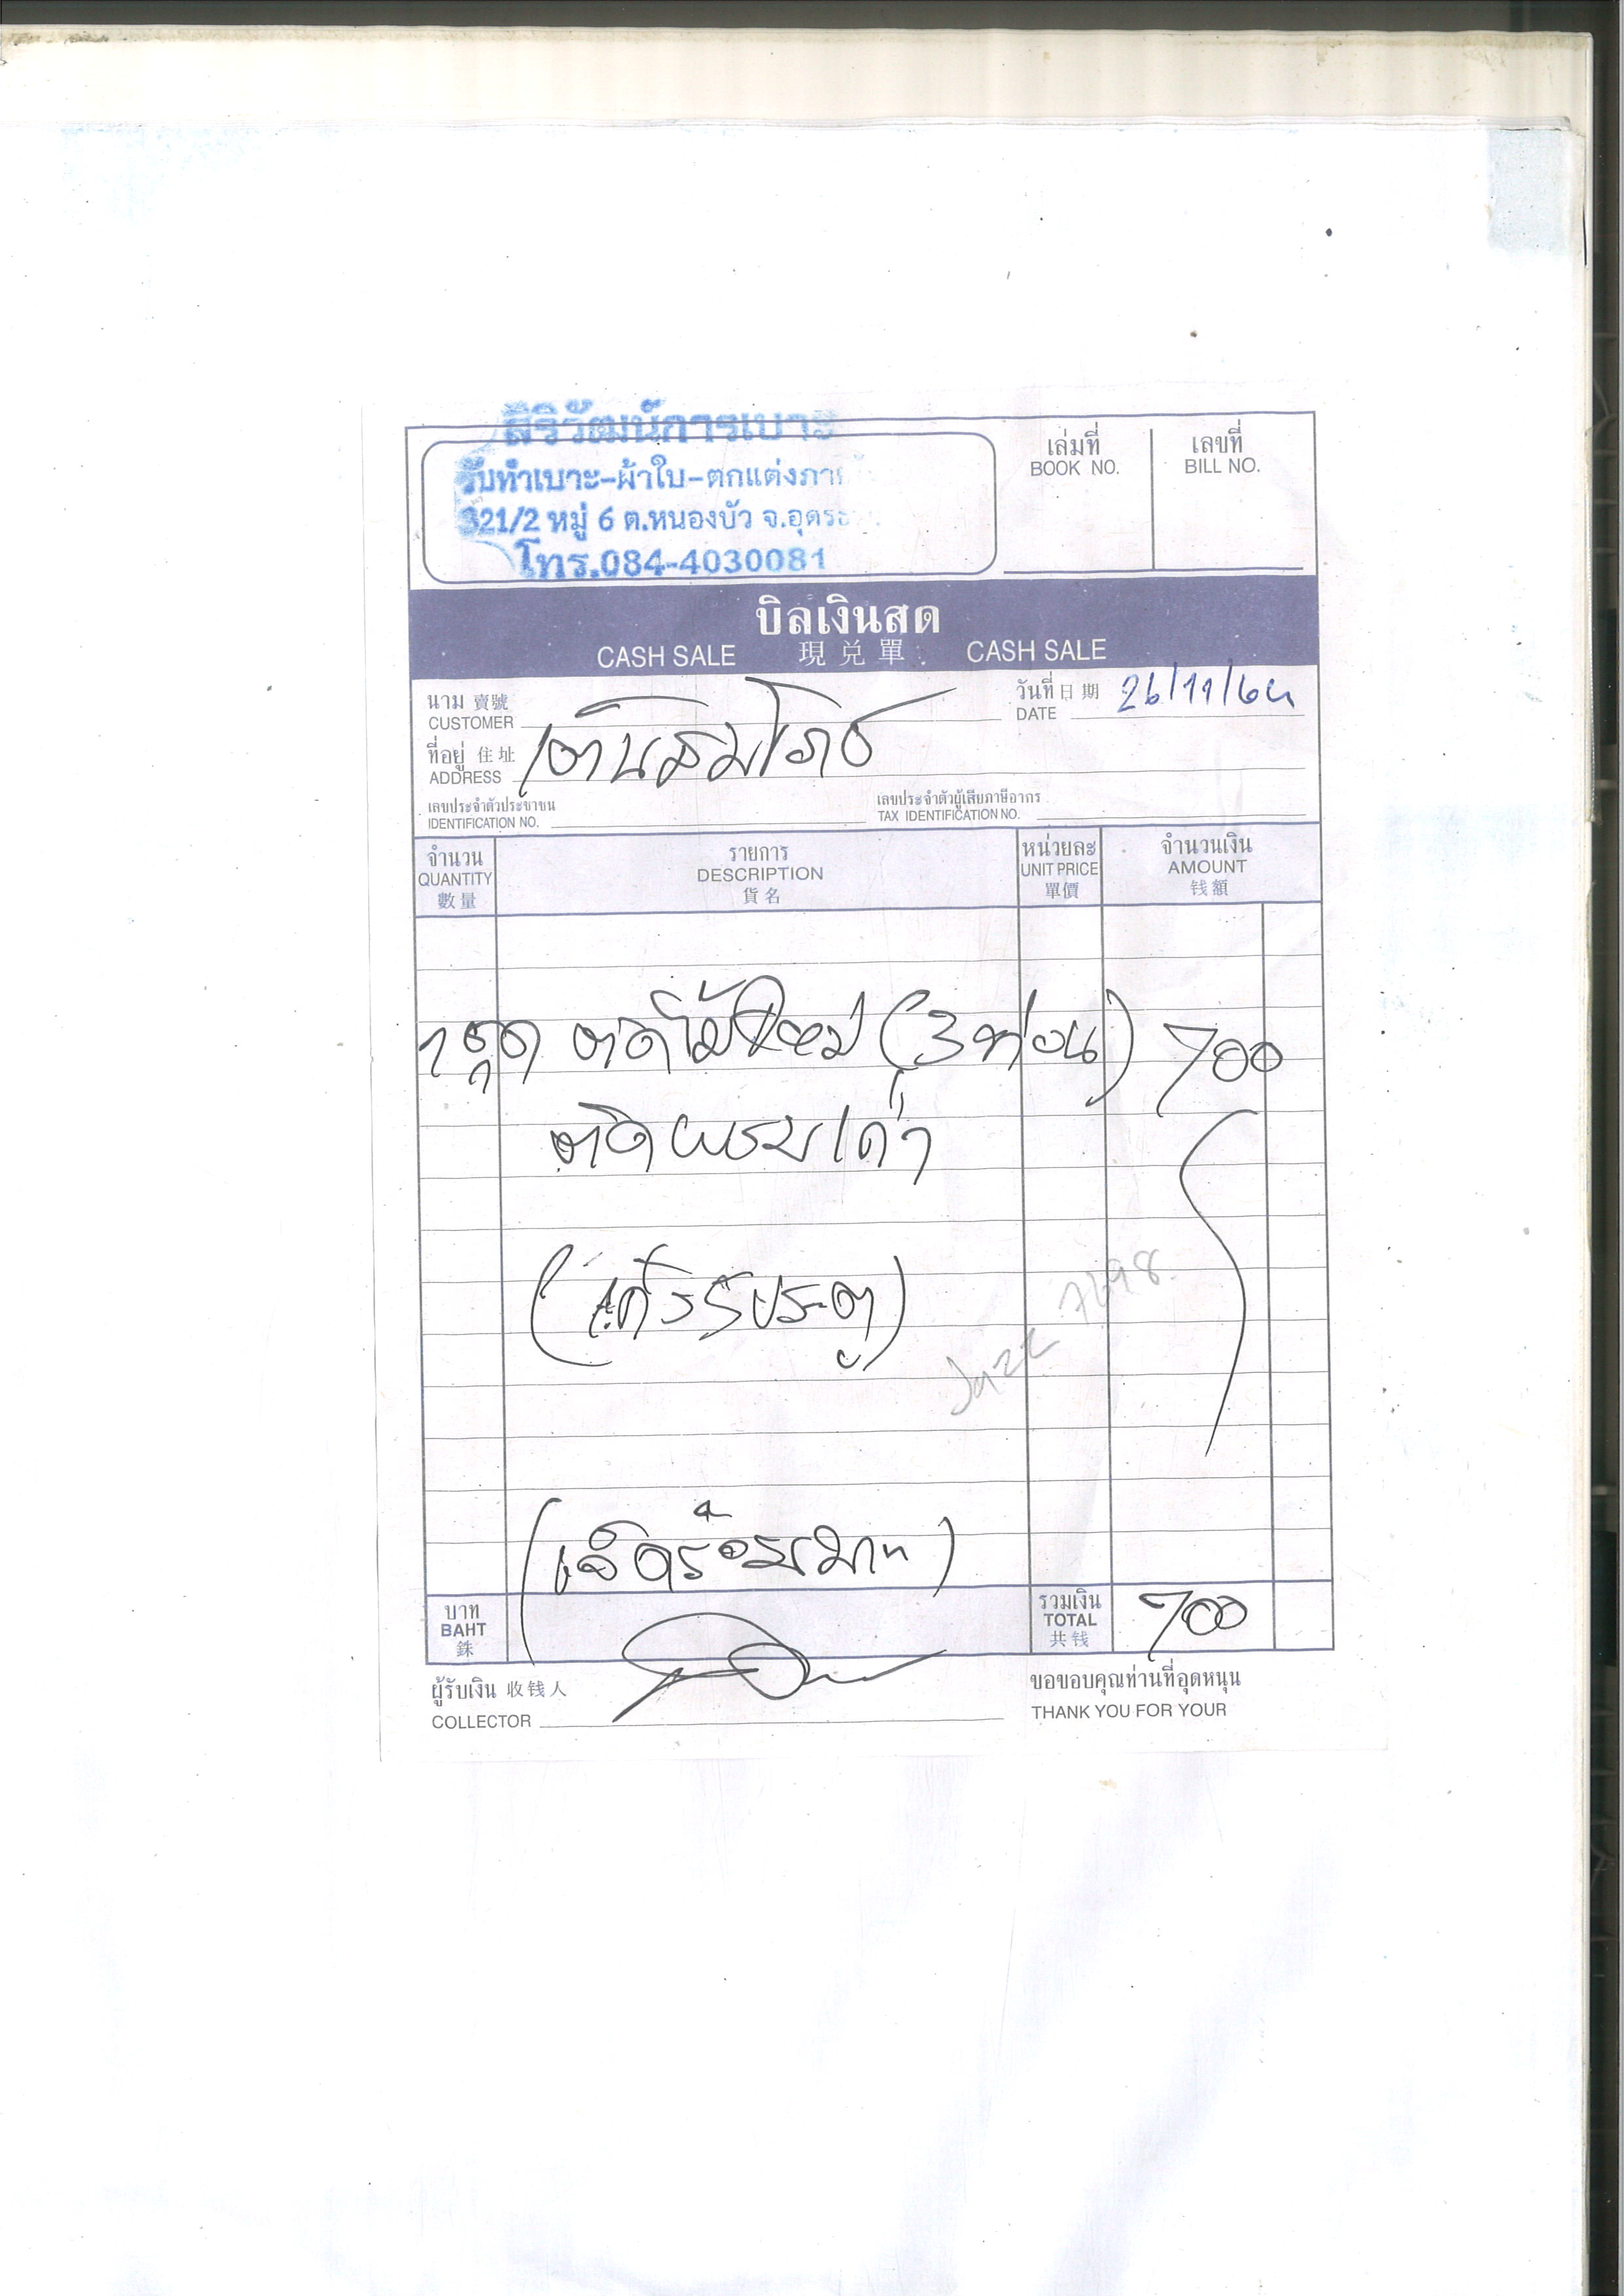 สิริวัฒน์การเบาะ
รับทำเบาะ-ผ้าใบ-ตกแต่งภา
321/2 หมู่ 6 ต.หนองบัว จ.อุดร
โทร.084-4030081
เล่มที่ เลขที่
BOOK NO. BILL NO.
บิลเงินสด
CASH SALE 現兌單 CASH SALE
นาม 賣號 วันที่ 日期 26/11/64
CUSTOMER DATE
ที่อยู่ 住址
ADDRESS
เลขประจำตัวประชาชน เลขประจำตัวผู้เสียภาษีอากร
IDENTIFICATION NO. TAX IDENTIFICATION NO.
จำนวน รายการ หน่วยละ จำนวนเงิน
QUANTITY DESCRIPTION UNIT PRICE AMOUNT
數量 貨名 單價 钱額
1 ชุด ตัดไม้ใหม่ (3 ท่อน) 700
ติดพรมเก่า
Jazz 7698
บาท รวมเงิน 700
BAHT TOTAL
銖 共钱
ผู้รับเงิน 收钱人 ขอขอบคุณท่านที่อุดหนุน
COLLECTOR THANK YOU FOR YOUR